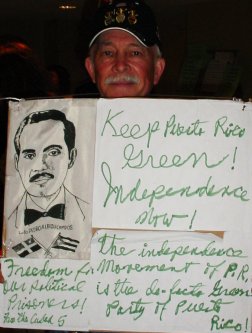 Keep Puerto Rico
Green!
Independence
Now!
Freedom for
Our Political
Prisoners!
Free The Cuban 5
The independence
Movement of P.R.
is the de-facto Green
Party of Puerto
Rico